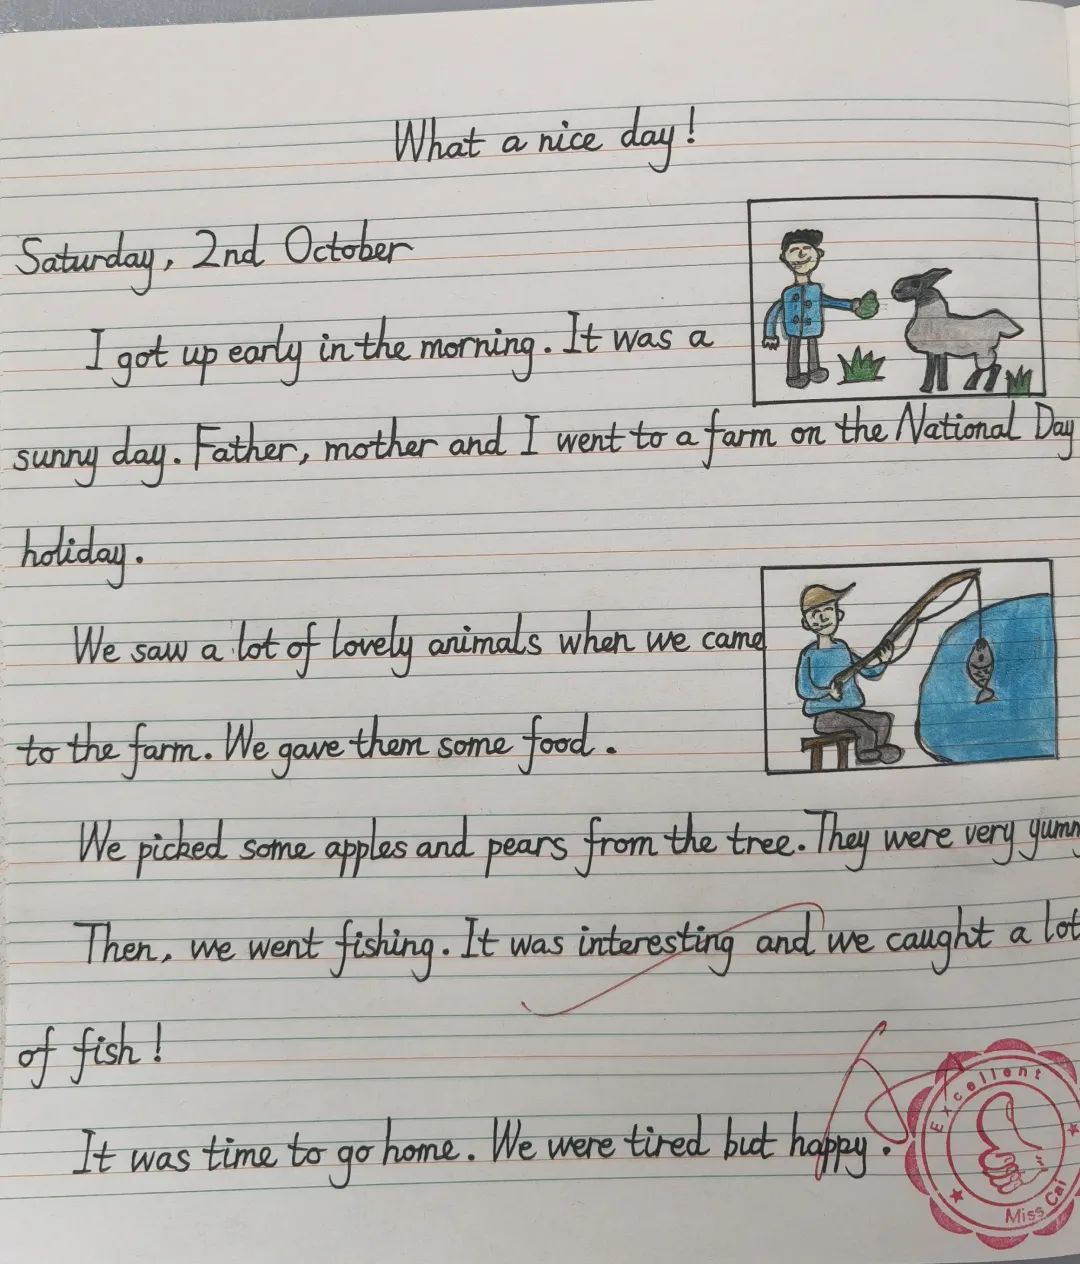 What a nice day!
Saturday, 2nd October
I got up early in the morning. It was a
sunny day. Father, mother and I went to a farm on the National Day
holiday.
We saw a lot of lovely animals when we came
to the farm. We gave them some food.
We picked some apples and pears from the tree. They were very
Then, we went fishing. It was interesting and we caught a lot
of fish!
It was time to go home. We were tired but happy.
Excellent
Miss Cai